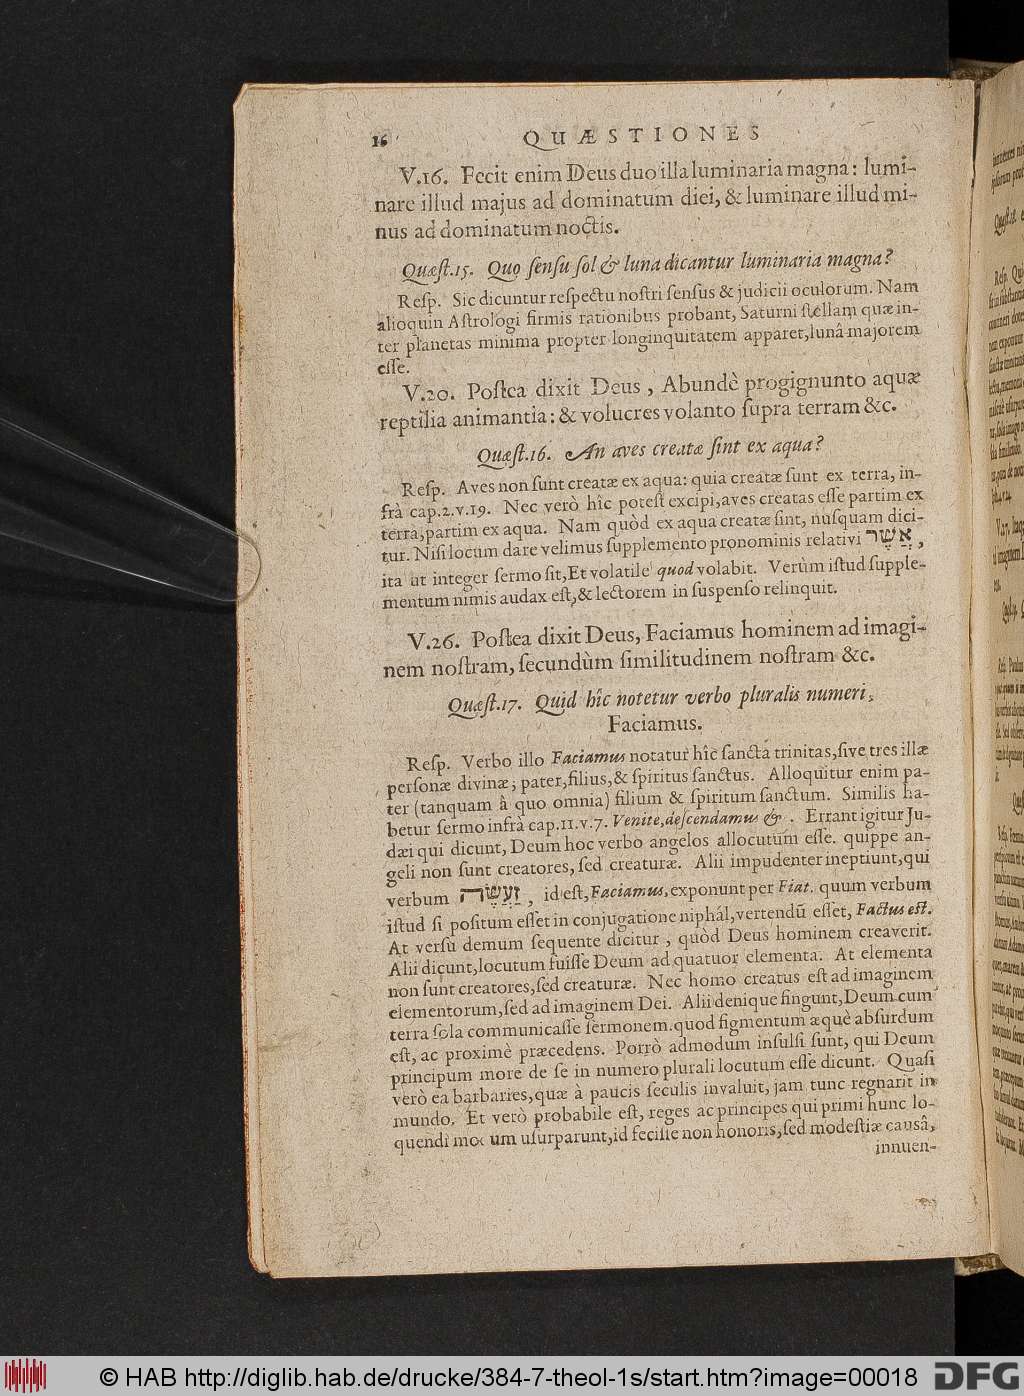 16 QUÆSTIONES
V.16. Fecit enim Deus duo illa luminaria magna: lumi-
nare illud majus ad dominatum diei, & luminare illud mi-
nus ad dominatum noctis.
Quæſt.15. Quo ſenſu ſol & luna dicantur luminaria magna?
Reſp. Sic dicuntur reſpectu noſtri ſenſus & judicii oculorum. Nam
alioquin Aſtrologi firmis rationibus probant, Saturni ſtellam quæ in-
ter planetas minima propter longinquitatem apparet, lunâ majorem
eſſe.
V.20. Poſtea dixit Deus, Abundè progignunto aquæ
reptilia animantia: & volucres volanto ſupra terram &c.
Quæſt.16. An aves creatæ ſint ex aqua?
Reſp. Aves non ſunt creatæ ex aqua: quia creatæ ſunt ex terra, in-
frà cap.2.v.19. Nec verò hîc poteſt excipi, aves creatas eſſe partim ex
terra, partim ex aqua. Nam quòd ex aqua creatæ ſint, nuſquam dici-
tur. Niſi locum dare velimus ſupplemento pronominis relativi אֲשֶׁר,
ita ut integer ſermo ſit, Et volatile quod volabit. Verùm iſtud ſupple-
mentum nimis audax eſt, & lectorem in ſuspenſo relinquit.
V.26. Poſtea dixit Deus, Faciamus hominem ad imagi-
nem noſtram, ſecundùm ſimilitudinem noſtram &c.
Quæſt.17. Quid hîc notetur verbo pluralis numeri,
Faciamus.
Reſp. Verbo illo Faciamus notatur hîc ſancta trinitas, ſive tres illæ
perſonæ divinæ; pater, filius, & ſpiritus ſanctus. Alloquitur enim pa-
ter (tanquam â quo omnia) filium & ſpiritum ſanctum. Similis ha-
betur ſermo infrà cap.11.v.7. Venite, deſcendamus & . Errant igitur Ju-
dæi qui dicunt, Deum hoc verbo angelos allocutum eſſe. quippe an-
geli non ſunt creatores, ſed creaturæ. Alii impudenter ineptiunt, qui
verbum נַעֲשֶׂה, id eſt, Faciamus, exponunt per Fiat. quum verbum
iſtud ſi poſitum eſſet in conjugatione niphál, vertendũ eſſet, Factus eſt.
At verſu demum ſequente dicitur, quòd Deus hominem creaverit.
Alii dicunt, locutum fuiſſe Deum ad quatuor elementa. At elementa
non ſunt creatores, ſed creaturæ. Nec homo creatus eſt ad imaginem
elementorum, ſed ad imaginem Dei. Alii denique fingunt, Deum cum
terra ſola communicaſſe ſermonem. quod figmentum æquè abſurdum
eſt, ac proximè præcedens. Porrò admodum inſulſi ſunt, qui Deum
principum more de ſe in numero plurali locutum eſſe dicunt. Quaſi
verò ea barbaries, quæ à paucis ſeculis invaluit, jam tunc regnarit in
mundo. Et verò probabile eſt, reges ac principes qui primi hunc lo-
quendi mo um uſurparunt, id feciſſe non honoris, ſed modeſtiæ cauſâ,
innuen-
© HAB http://diglib.hab.de/drucke/384-7-theol-1s/start.htm?image=00018
DFG